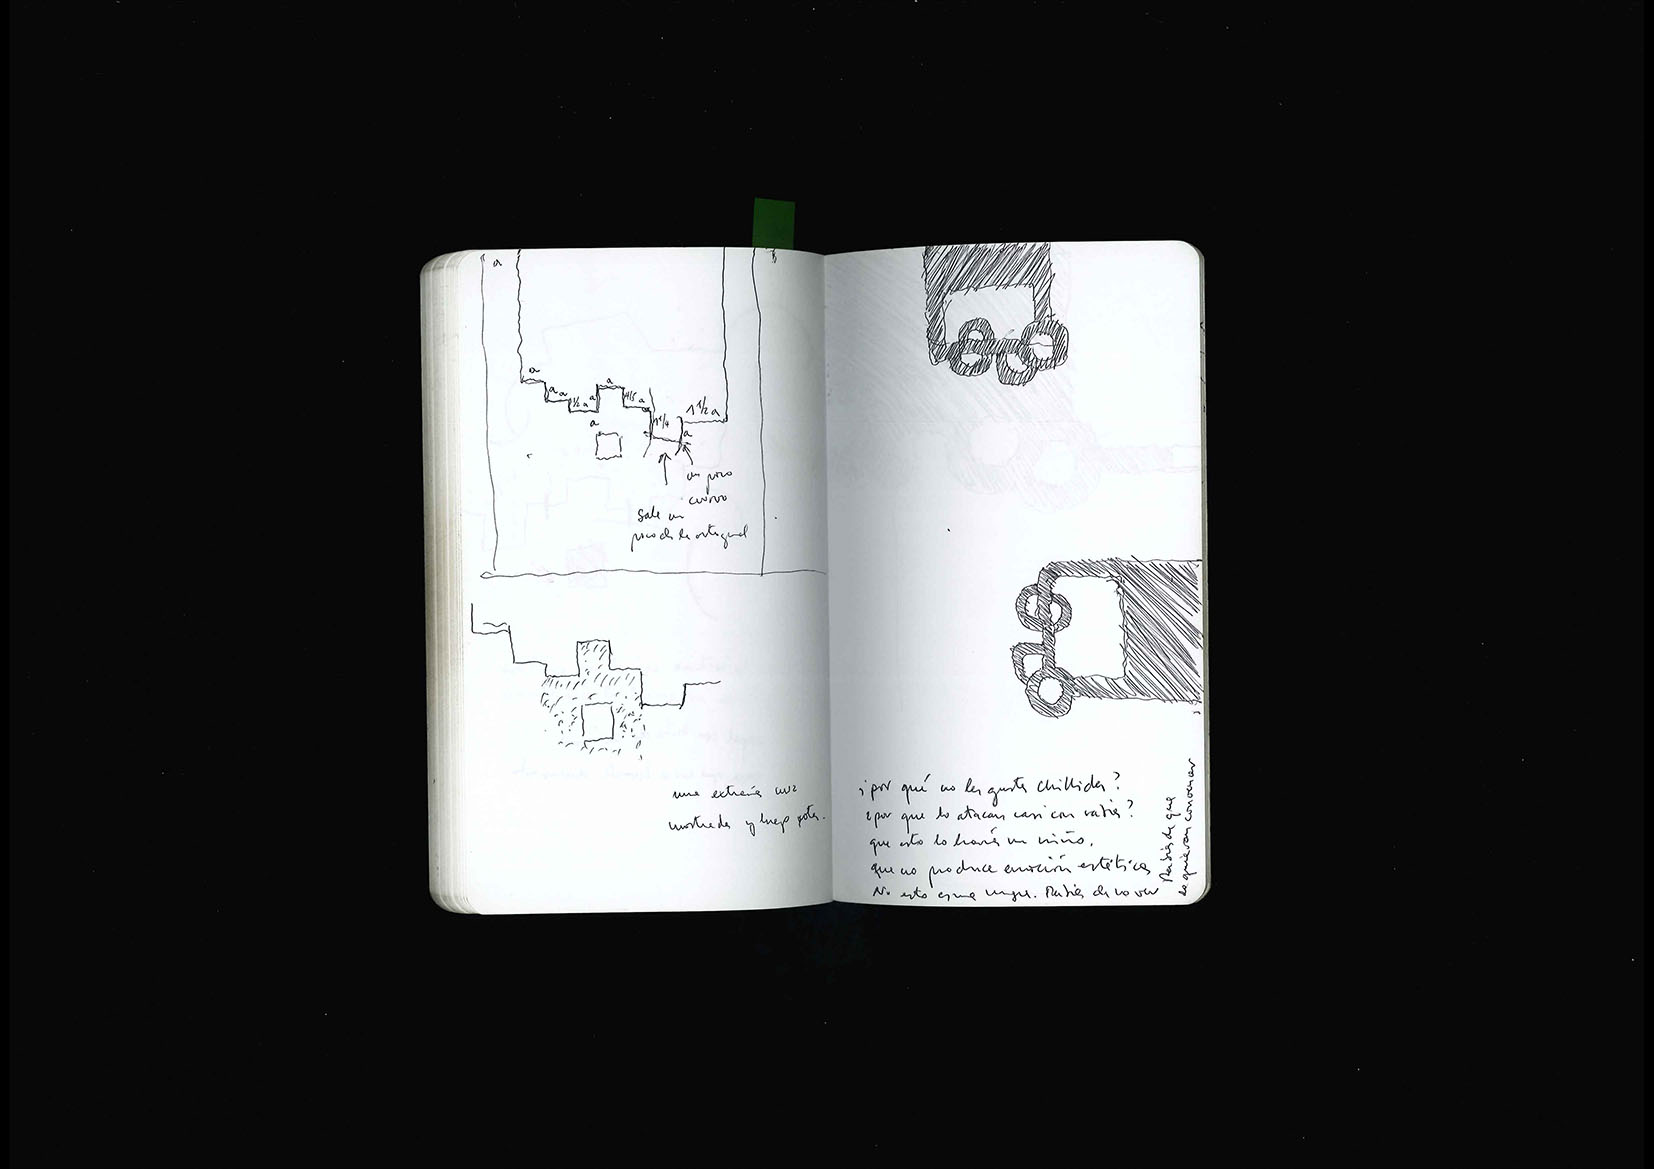 a
a
a
a
a
1/2 a
a
a
4/5 a
1 1/4
1 1/2 a
a
un poco
curvo
Sale un
poco de la ortogonal
una extraña cruz
mostrada y luego
¿por qué no les gusta Chillida?
¿por que lo atacan casi con rabia?
que esto lo haría un niño,
que no produce emoción estética
No esto es una Rabia de no ver
Rabia de que
se quieran conocer